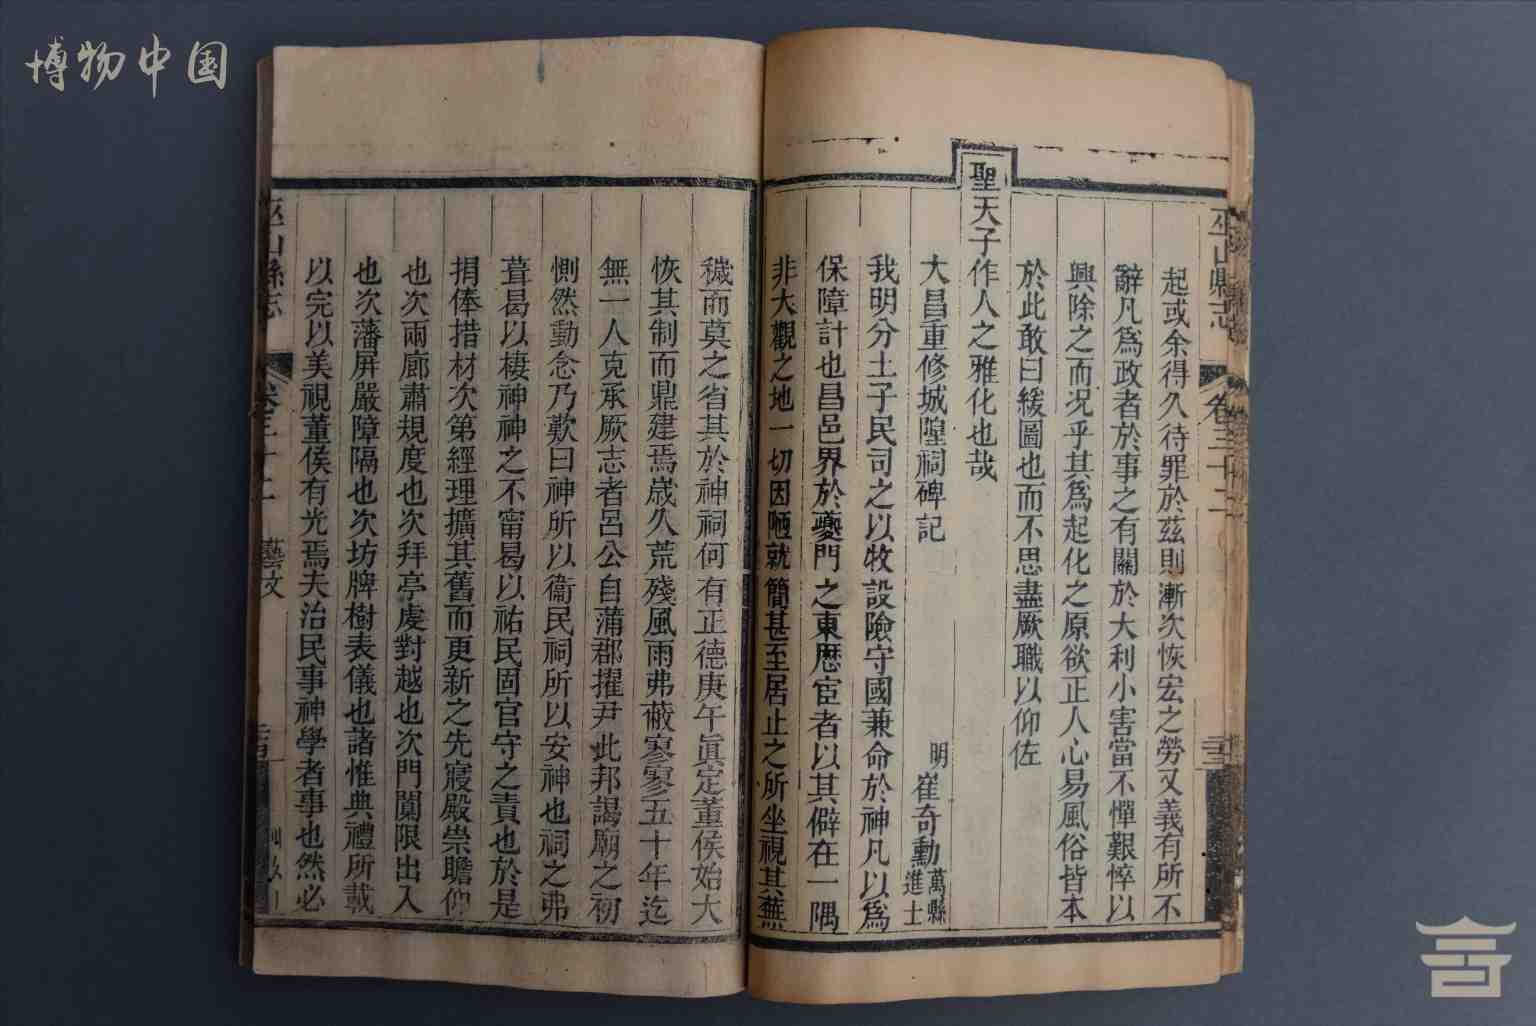 博物中国
巫山縣志
卷三十二
起或余得久待罪於茲則漸次恢宏之勞又義有所不
辭凡爲政者於事之有關於大利小害當不憚艱悴以
興除之而况乎其爲起化之原欲正人心易風俗皆本
於此敢曰緩圖也而不思盡厥職以仰佐
聖天子作人之雅化也哉
大昌重修城隍祠碑記
明 崔奇勳 萬縣進士
我明分土子民司之以牧設險守國兼命於神凡以爲
保障計也昌邑界於夔門之東歷宦者以其僻在一隅
非大觀之地一切因陋就簡甚至居止之所坐視其蕪
穢而莫之省其於神祠何有正德庚午眞定董侯始大
恢其制而鼎建焉歲久荒殘風雨弗蔽寥寥五十年迄
無一人克承厥志者呂公自蒲郡擢尹此邦謁廟之初
惻然動念乃歎曰神所以衞民祠所以安神也祠之弗
葺曷以棲神神之不甯曷以祐民固官守之責也於是
捐俸措材次第經理擴其舊而更新之先寢殿崇瞻仰
也次兩廊肅規度也次拜亭虔對越也次門闑限出入
也次藩屏嚴障隔也次坊牌樹表儀也諸惟典禮所載
以完以美視董侯有光焉夫治民事神學者事也然必
巫山縣志
卷三十二
藝文